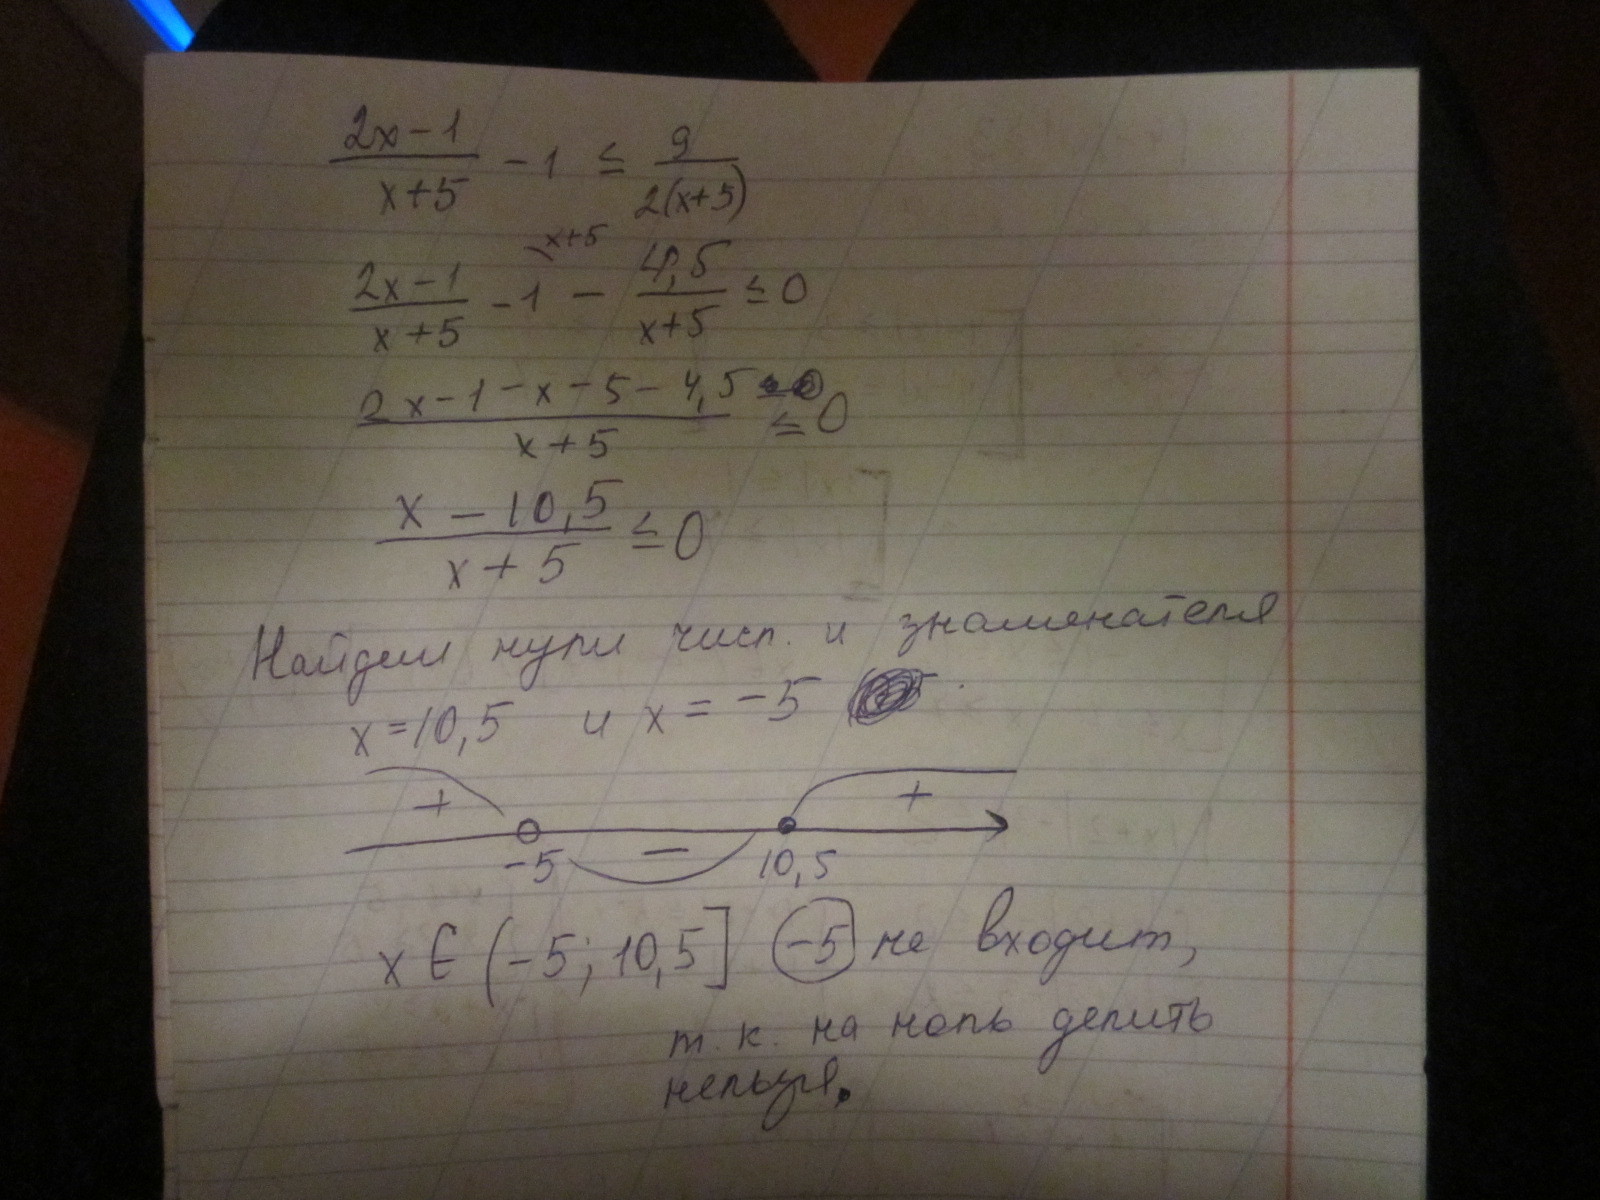 (2x-1)/(x+5) - 1 ≤ 9/(2(x+5))
(2x-1)/(x+5) - 1^(x+5) - 4,5/(x+5) ≤ 0
(2x-1-x-5-4,5)/(x+5) ≤ 0
(x-10,5)/(x+5) ≤ 0
Найдем нули числ. и знаменателя
x=10,5 и x=-5
+ - +
-5 10,5
x ∈ (-5; 10,5] -5 не входит,
т.к. на ноль делить
нельзя.